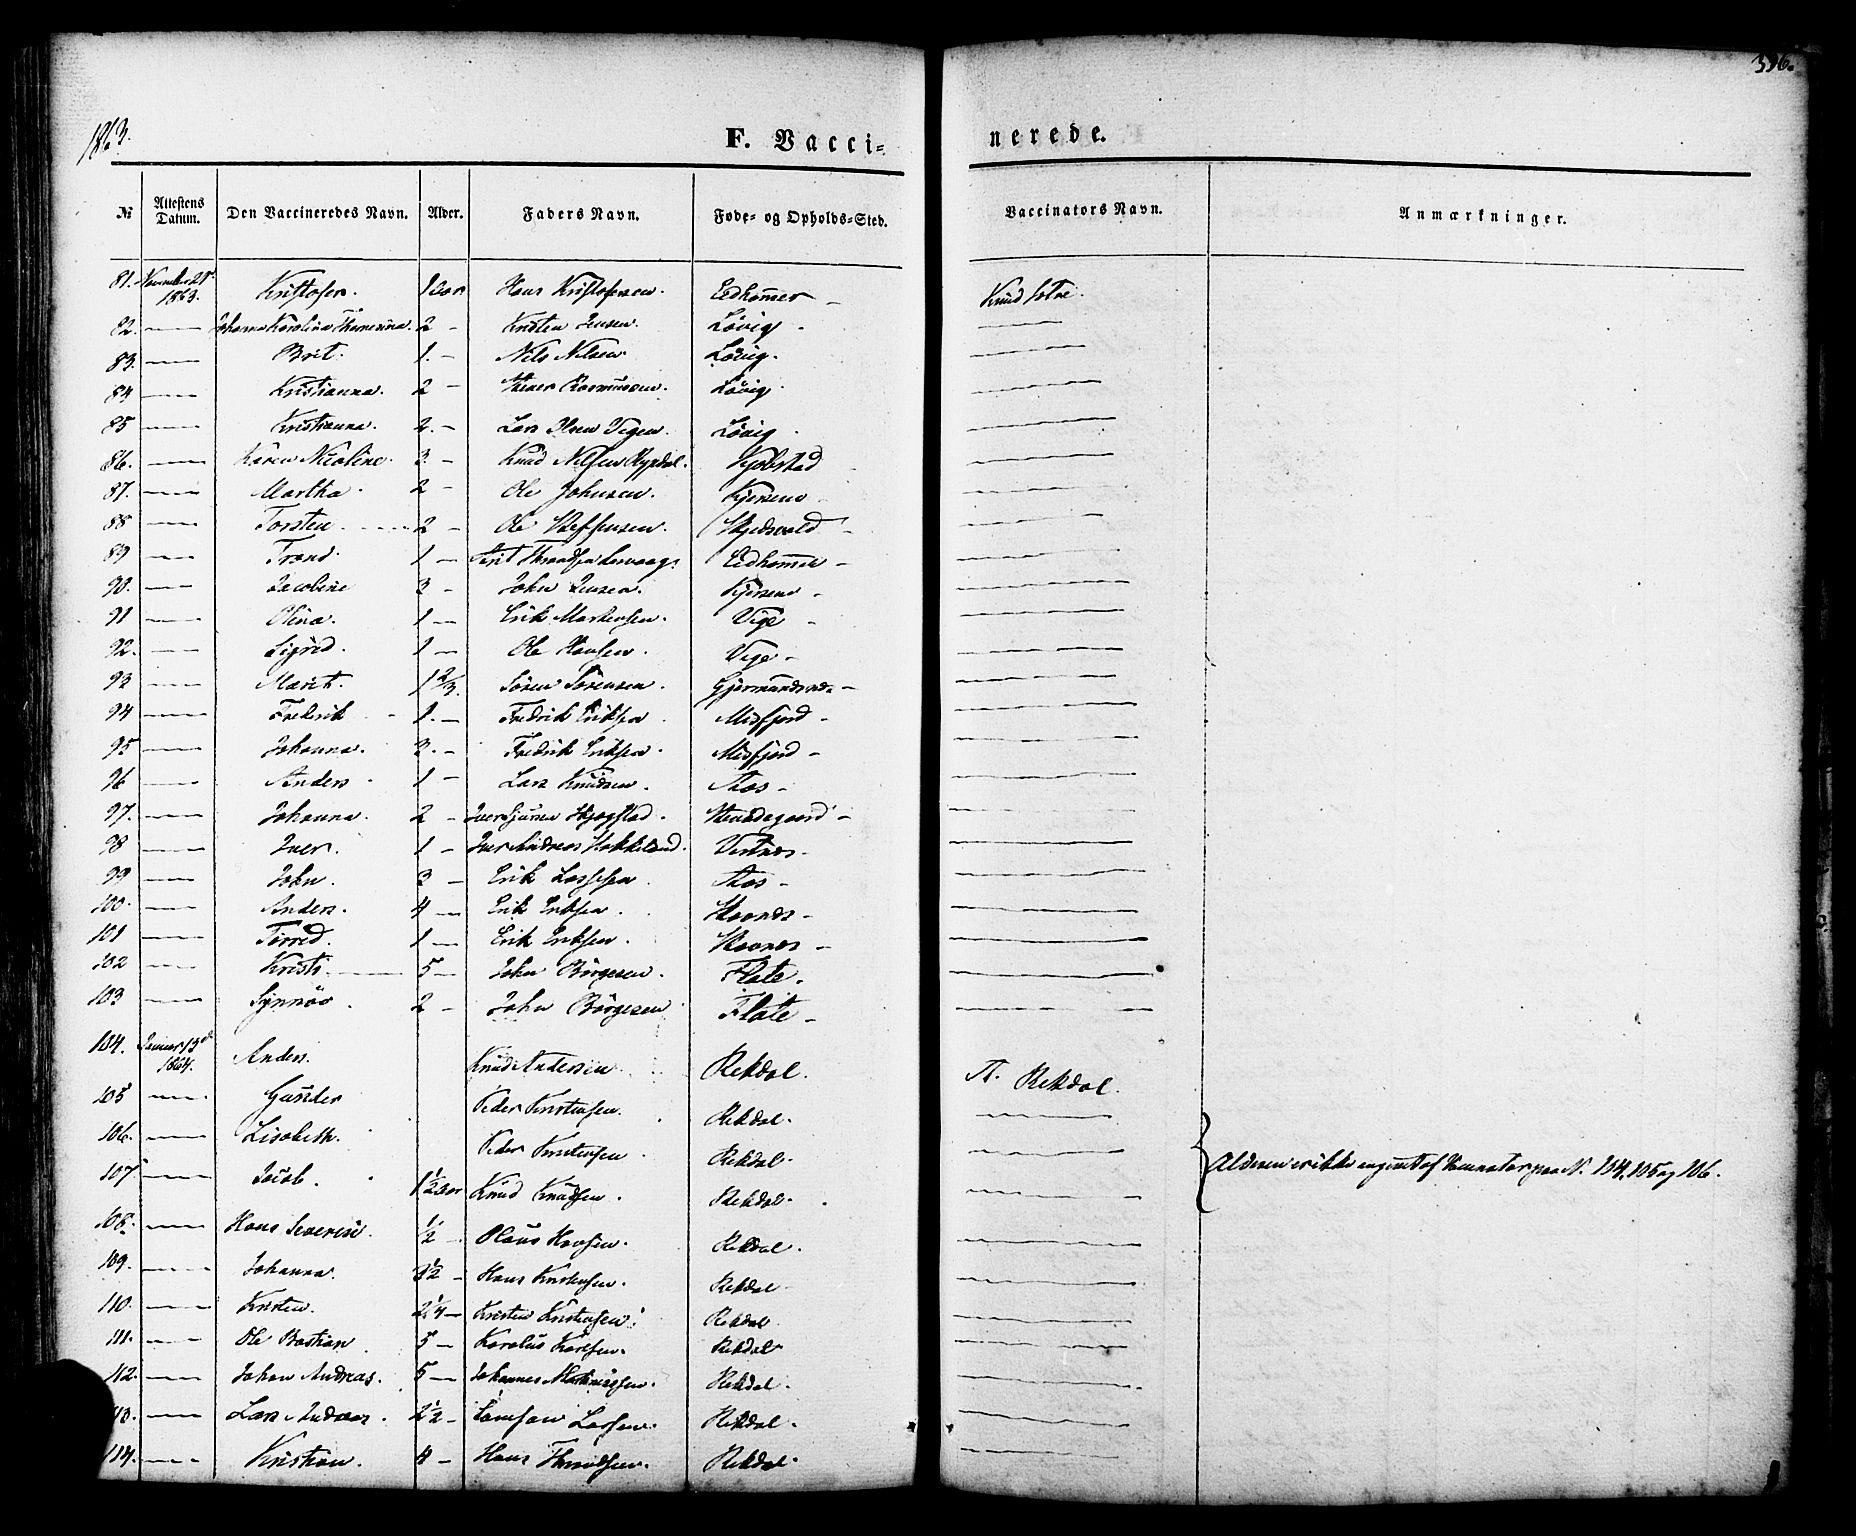 396.
1863.
F. Vacci-
nerede.
№ Attestens Datum. Den Vaccineredes Navn. Alder. Faders Navn. Føde- og Opholds-Sted. Vaccinators Navn. Anmærkninger.
81. 1863. Kristofer. 1 aar Hans Kristofersen Eedhammer — Knud
82. — Johanna Karolina 2 - Kristen Jensen. Lövig -
83. — Brit. 1. - Nils Nilsen. Lövig. —
84 — Kristianna. 2 - Rasmussen. Lövig —
85 — Kristianna. 2. - Lars Olsen Vigen. Lövig. —
86. — Karen Nicoline. 3. - Knud Nilsen Rypdal. —
87. — Martha. 2 - Ole Johnsen. —
88 — Torsten. 2 - Ole Steffensen. —
89 — Trond. 1 - Eedhammer — —
90. — Jacobine 3 - John Jensen. —
91 — Olina. 1 — Erik Martensen. Vige - —
92. — Sigrid. 1 — Ole Hansen. Vige - —
93 — Marit. 1 2/3. Sören Sörensen. Gjermundsnes - —
94 — Frederik 1. — Fredrik Eriksen Misfjord - —
95 — Johanna. 3. - Fredrik Eriksen Misfjord - —
96 — Anders 1 - Lars Knudsen. Aas - —
97. — Johanna. 2 - —
98 — Iver. 1 - Iver Andreas Vestnes - —
99 — John. 3 - Erik Lassesen Aas - —
100. — Anders. 4 - Erik Eriksen. —
101 — 1 — Erik Eriksen. —
102 — Kristi. 5 — John Börgesen. Flate. —
103 — Synnöv. 2 - John Börgesen Flate - —
104. Januar 13d 1864. Anders. Knud Andersen Rekdal. A. Rekdal.
105 — Gunder Peder Kristensen. Rekdal. —
106. — Lisabeth. Peder Kristensen Rekdal. — Alderen er ikke af Vaccinator paa N. 104, 105 og 106.
107 — Jacob. 1 1/2 aar Knud Knudsen. Rekdal. —
108. — Hans Severin. 1/2 - Olaus Hansen. Rekdal. —
109. — Johanna. 1/2 - Hans Kristensen. Rekdal —
110. — Kristen. 2 1/4 — Kristen Kristensen. Rekdal —
111. — Ole Bastian 5 — Karolus Karlsen. Rekdal —
112. — Johan Andreas. 5 — Johannes Rekdal. —
113. — Lars Andreas. 2 1/2 - Lassen. Rekdal. —
114. — Kristian. 4 - Hans Rekdal. —